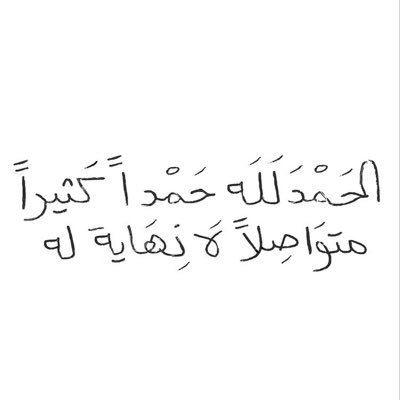 الحَمْدَلَلَه حَمْداً كَثيراً
متوَاصِلاً لَا نِهَايةَ له